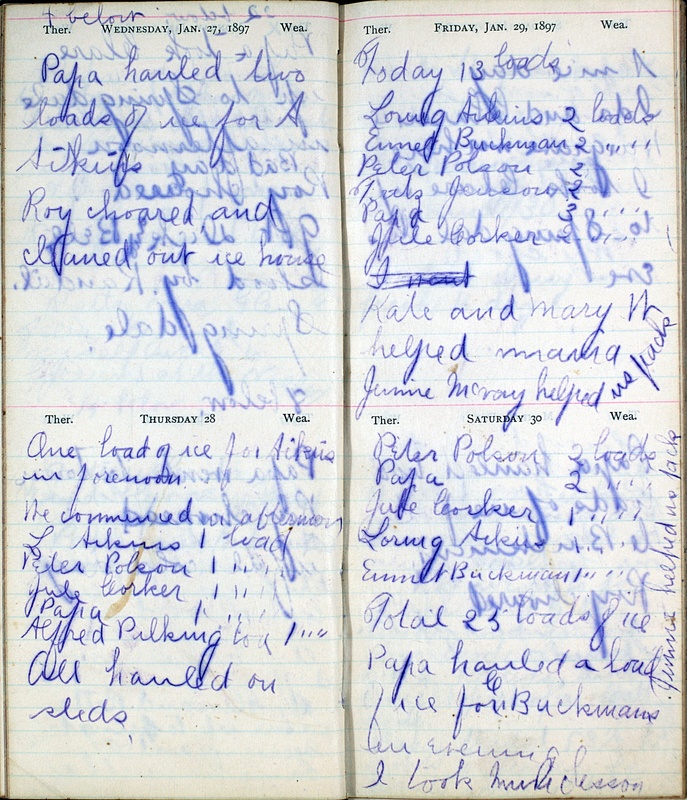 7 below
Ther. WEDNESDAY, JAN. 27, 1897 Wea.
Papa hauled two
loads of ice for A
Aitkins
Roy choared and
cleaned out ice house
Ther. THURSDAY 28 Wea.
One load of ice for Aitkins
in forenoon
We commenced in afternoon
L Aitkins 1 load
Peter Polson 1 " "
Jule Corker 1 " "
Papa 1 " "
Alfred Pilkington 1 " "
All hauled on
sleds
Ther. FRIDAY, JAN. 29, 1897 Wea.
Today 13 loads
Loring Aitkins 2 loads
Emmet Buckman 2 " "
Peter Polson 2
2
Papa 3 " "
Jule Corker 2 " "
I went
Kate and Mary W
helped mama
Jimmie McVay helped us pack
Ther. SATURDAY 30 Wea.
Peter Polson 2 loads
Papa 2 " "
Jule Corker 1 " "
Loring Aitkins 1 " "
Emmet Buckman 1 " "
Total 25 loads of ice
Papa hauled a load
of ice for C Buckmans
in evening
I took music lesson
Jimmie helped us pack